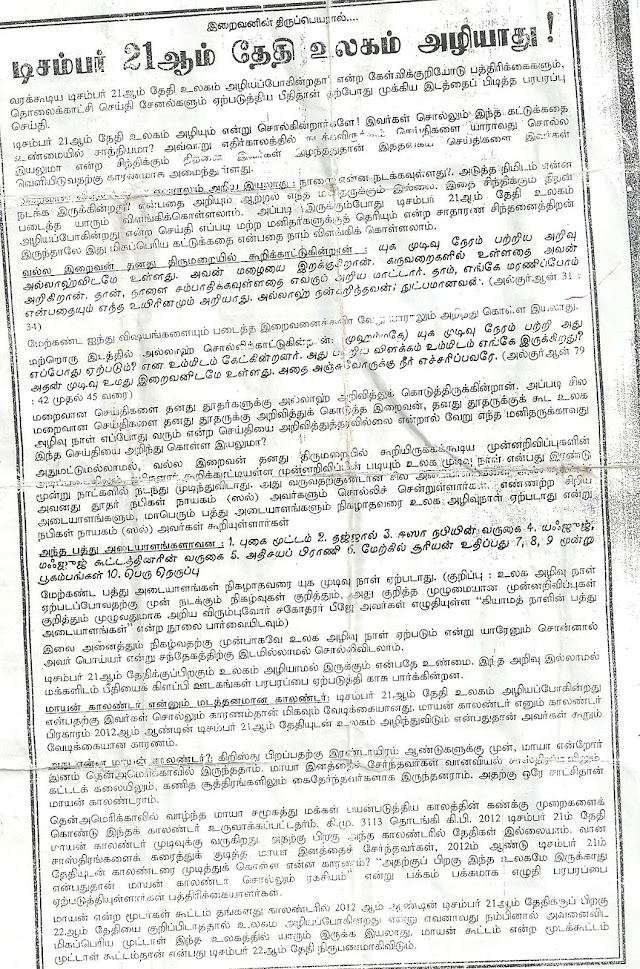 இறைவனின் திருப்பெயரால்....
டிசம்பர் 21ஆம் தேதி உலகம் அழியாது !
வரக்கூடிய டிசம்பர் 21ஆம் தேதி உலகம் அழியப்போகின்றதா? என்ற கேள்விக்குறியோடு பத்திரிக்கைகளும்,
தொலைக்காட்சி செய்தி சேனல்களும் ஏற்படுத்திய பீதிதான் தற்போது முக்கிய இடத்தைப் பிடித்த பரபரப்பு
செய்தி.
டிசம்பர் 21ஆம் தேதி உலகம் அழியும் என்று சொல்கின்றார்களே! இவர்கள் சொல்லும் இந்த கட்டுக்கதை
உண்மையில் சாத்தியமா? அவ்வாறு எதிர்காலத்தில் செய்திகளை யாராவது சொல்ல
இயலுமா என்ற சிந்திக்கும் இவர்கள் செய்திகளை இவர்கள்
வெளியிடுவதற்கு காரணமாக அமைந்துள்ளது.
அறிய இயலுமா : நாளை என்ன நடக்கவுள்ளது?. அடுத்த நிமிடம் என்ன
நடக்க இருக்கின்றது? என்பதை அறியும் ஆற்றல் எந்த மனிதருக்கும் இல்லை. இதை சிந்திக்கும் திறன்
படைத்த யாரும் விளங்கிக்கொள்ளலாம். அப்படி இருக்கும்போது டிசம்பர் 21ஆம் தேதி உலகம்
அழியப்போகின்றது என்ற செய்தி எப்படி மற்ற மனிதர்களுக்குத் தெரியும் என்ற சாதாரண சிந்தனைத்திறன்
இருந்தாலே இது மிகப்பெரிய கட்டுக்கதை என்பதை நாம் விளங்கிக் கொள்ளலாம்.
வல்ல இறைவன் தனது திருமறையில் கூறிக்காட்டுகின்றான் : யுக முடிவு நேரம் பற்றிய அறிவு
அல்லாஹ்விடமே உள்ளது. அவன் மழையை இறக்குகிறான். கருவறைகளில் உள்ளதை அவன்
அறிகிறான். தான், நாளை சம்பாதிக்கவுள்ளதை எவரும் அறிய மாட்டார். தாம், எங்கே மரணிப்போம்
என்பதையும் எந்த உயிரினமும் அறியாது. அல்லாஹ் நன்கறிந்தவன்; நுட்பமானவன். (அல்குர்ஆன் 31 :
34)
மேற்கண்ட ஐந்து விஷயங்களையும் படைத்த இறைவனைத்தவிர வேறு யாராலும் அறிந்து கொள்ள இயலாது.
மற்றொரு இடத்தில் அல்லாஹ் சொல்லிக்காட்டுகின்றான்: (முஹம்மதே) யுக முடிவு நேரம் பற்றி அது
எப்போது ஏற்படும்? என உம்மிடம் கேட்கின்றனர். அது பற்றிய விளக்கம் உம்மிடம் எங்கே இருக்கிறது?
அதன் முடிவு உமது இறைவனிடமே உள்ளது. அதை அஞ்சுவோருக்கு நீர் எச்சரிப்பவரே. (அல்குர்ஆன் 79
: 42 முதல் 45 வரை)
மறைவான செய்திகளை தனது தூதர்களுக்கு அல்லாஹ் அறிவித்துக் கொடுத்திருக்கின்றான். அப்படி சில
மறைவான செய்திகளை தனது தூதருக்கு அறிவித்துக் கொடுத்த இறைவன், தனது தூதருக்குக் கூட உலக
அழிவு நாள் எப்போது வரும் என்ற செய்தியை அறிவித்துத்தரவில்லை என்றால் வேறு எந்த மனிதருக்காவது
இந்த செய்தியை அறிந்து கொள்ள இயலுமா?
அதுமட்டுமல்லாமல், வல்ல இறைவன் தனது திருமறையில் கூறியிருக்கக்கூடிய முன்னறிவிப்புகளின்
கூறிக்காட்டியுள்ள முன்னறிவிப்பின் படியும் உலக முடிவு நாள் என்பது இரண்டு
மூன்று நாட்களில் நடந்து முடிந்துவிடாது. அது வருவதற்குண்டான சில
அவனது தூதர் நபிகள் நாயகம் (ஸல்) அவர்களும் சொல்லிச் சென்றுள்ளார்கள். எண்ணற்ற சிறிய
அடையாளங்களும், மாபெரும் பத்து அடையாளங்களும் நிகழாதவரை உலக அழிவுநாள் ஏற்படாது என்று
நபிகள் நாயகம் (ஸல்) அவர்கள் கூறியுள்ளார்கள்
அந்த பத்து அடையாளங்களாவன : 1. புகை மூட்டம் 2. தஜ்ஜால் 3. ஈஸா நபியின் வருகை 4. யஃஜூஜ்,
மஃஜூஜ் கூட்டத்தினரின் வருகை 5. அதிசயப் பிராணி 6. மேற்கில் சூரியன் உதிப்பது 7, 8, 9 மூன்று
பூகம்பங்கள் 10. பெரு நெருப்பு
மேற்கண்ட பத்து அடையாளங்கள் நிகழாதவரை யுக முடிவு நாள் ஏற்படாது. (குறிப்பு : உலக அழிவு நாள்
ஏற்படப்போவதற்கு முன் நடக்கும் நிகழ்வுகள் குறித்தும், அது குறித்த முழுமையான முன்னறிவிப்புகள்
குறித்தும் முழுவதுமாக அறிய விரும்புவோர் சகோதரர் பீஜே அவர்கள் எழுதியுள்ள "கியாமத் நாளின் பத்து
அடையாளங்கள்" என்ற நூலை பார்வையிடவும்)
இவை அனைத்தும் நிகழ்வதற்கு முன்பாகவே உலக அழிவு நாள் ஏற்படும் என்று யாரேனும் சொன்னால்
அவர் பொய்யர் என்று சந்தேகத்திற்கு இடமில்லாமல் சொல்லிவிடலாம்.
டிசம்பர் 21ஆம் தேதிக்குப்பிறகும் உலகம் அழியாமல் இருக்கும் என்பதே உண்மை. இந்த அறிவு இல்லாமல்
மக்களிடம் பீதியைக் கிளப்பி ஊடகங்கள் பரபரப்பை ஏற்படுத்தி காசு பார்க்கின்றன.
மாயன் காலண்டர் என்னும் மடத்தனமான காலண்டர்: டிசம்பர் 21ஆம் தேதி உலகம் அழியப்போகின்றது
என்பதற்கு இவர்கள் சொல்லும் காரணம்தான் மிகவும் வேடிக்கையானது. மாயன் காலண்டர் எனும் காலண்டர்
பிரகாரம் 2012ஆம் ஆண்டின் டிசம்பர் 21ஆம் தேதியுடன் உலகம் அழிந்துவிடும் என்பதுதான் அவர்கள் கூறும்
வேடிக்கையான காரணம்.
அது என்ன மாயன் காலண்டர்?: கிறிஸ்து பிறப்பதற்கு இரண்டாயிரம் ஆண்டுகளுக்கு முன், மாயா என்றோர்
இனம் தென்அமெரிக்காவில் இருந்ததாம். மாயா இனத்தைச் சேர்ந்தவர்கள் வானவியல் சாஸ்திரத்திலும்,
கட்டடக் கலையிலும், கணித சூத்திரங்களிலும் கைதேர்ந்தவர்களாக இருந்தனராம். அதற்கு ஒரே சாட்சிதான்
மாயன் காலண்டராம்.
தென்அமெரிக்காவில் வாழ்ந்த மாயா சமூகத்து மக்கள் பயன்படுத்திய காலத்தின் கணக்கு முறைகளைக்
கொண்டு இந்தக் காலண்டர் உருவாக்கப்பட்டதாம். கி.மு. 3113 தொடங்கி கி.பி. 2012 டிசம்பர் 21ம் தேதி
மாயன் காலண்டர் முடிவுக்கு வருகிறது. அதற்கு பிறகு அந்த காலண்டரில் தேதிகள் இல்லையாம். வான
சாஸ்திரங்களைக் கரைத்துக் குடித்த மாயா இனத்தைச் சேர்ந்தவர்கள், 2012ம் ஆண்டு டிசம்பர் 21ம்
தேதியுடன் காலண்டரை முடித்துக் கொள்ள என்ன காரணம்? "அதற்குப் பிறகு இந்த உலகமே இருக்காது
என்பதுதான் மாயன் காலண்டர் சொல்லும் ரகசியம்" என்று பக்கம் பக்கமாக எழுதி பரபரப்பை
ஏற்படுத்தியுள்ளார்கள் பத்திரிக்கையாளர்கள்.
மாயன் என்ற மூடர்கள் கூட்டம் தங்களது காலண்டரில் 2012 ஆம் ஆண்டின் டிசம்பர் 21ஆம் தேதிக்குப் பிறகு
22ஆம் தேதியை குறிப்பிடாததால் உலகமே அழியப்போகின்றது என்று எவனாவது நம்பினால் அவனைவிட
மிகப்பெரிய முட்டாள் இந்த உலகத்தில் யாரும் இருக்க இயலாது. மாயன் கூட்டம் என்ற மூடக்கூட்டம்
முட்டாள் கூட்டம்தான் என்பது டிசம்பர் 22ஆம் தேதி நிரூபணமாகிவிடும்.